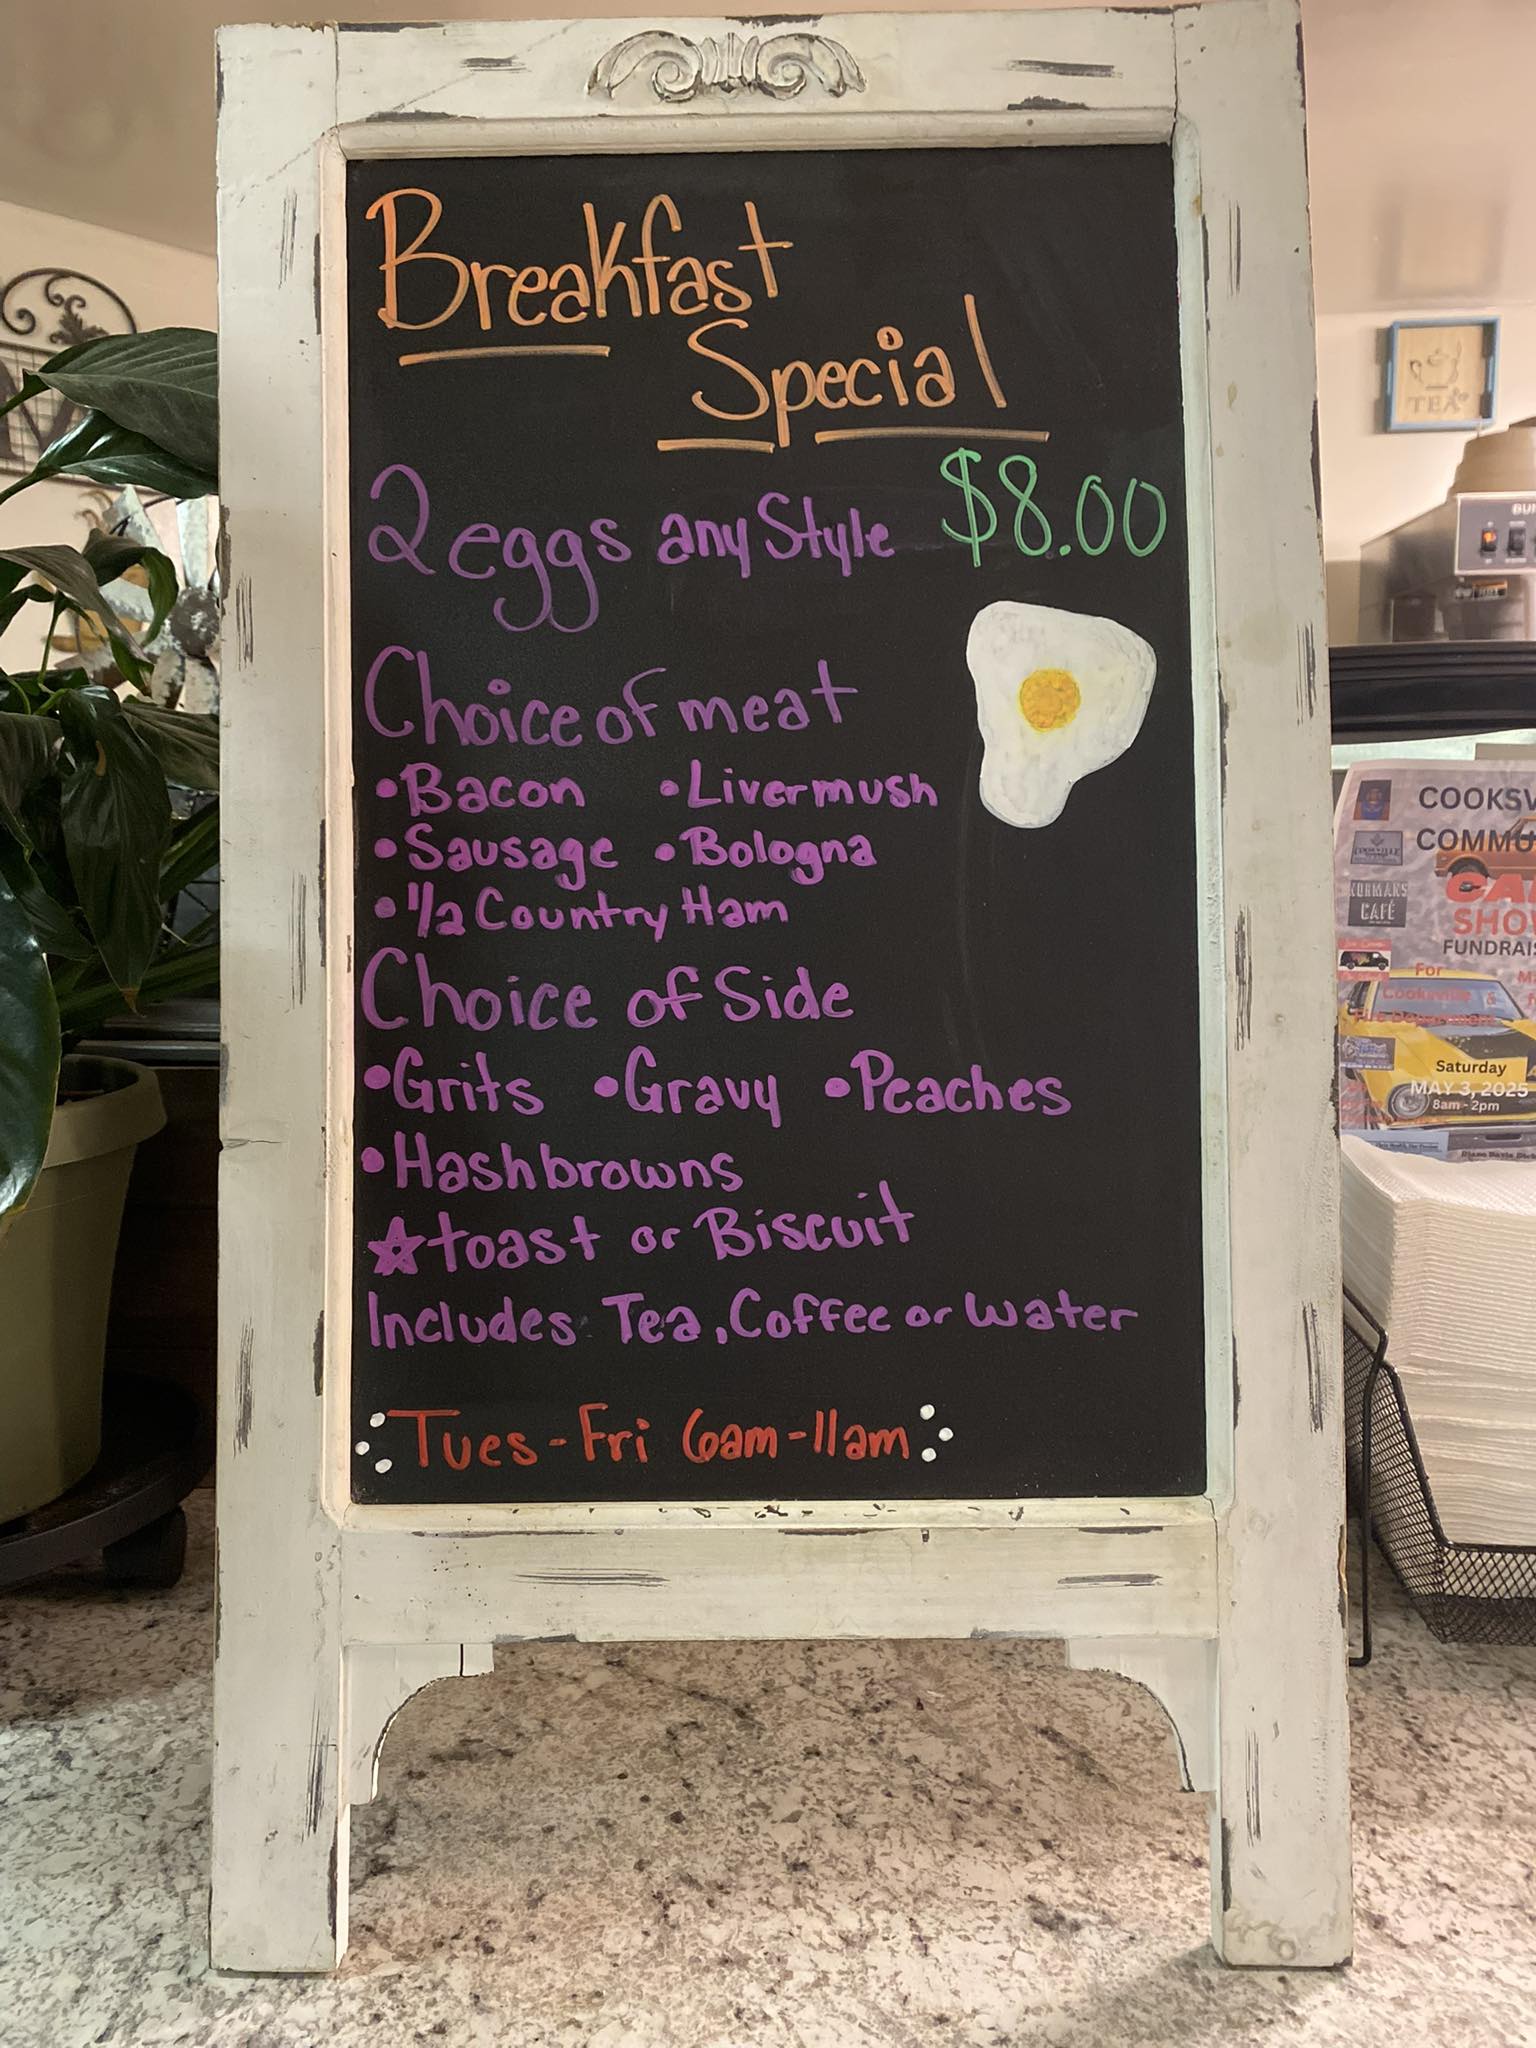 Breakfast
Special
2 eggs any Style $8.00
Choice of meat
•Bacon •Livermush
•Sausage •Bologna
•1/2 Country Ham
Choice of Side
•Grits •Gravy •Peaches
•Hashbrowns
☆toast or Biscuit
Includes Tea, Coffee or water
Tues-Fri 6am-11am
TEA
COOKSV
COMMU
NORMANS
CAFÉ
SHO
FUNDRAIS
For
Cooksville &
Fire Department
Saturday
MAY 3, 2025
8am - 2pm